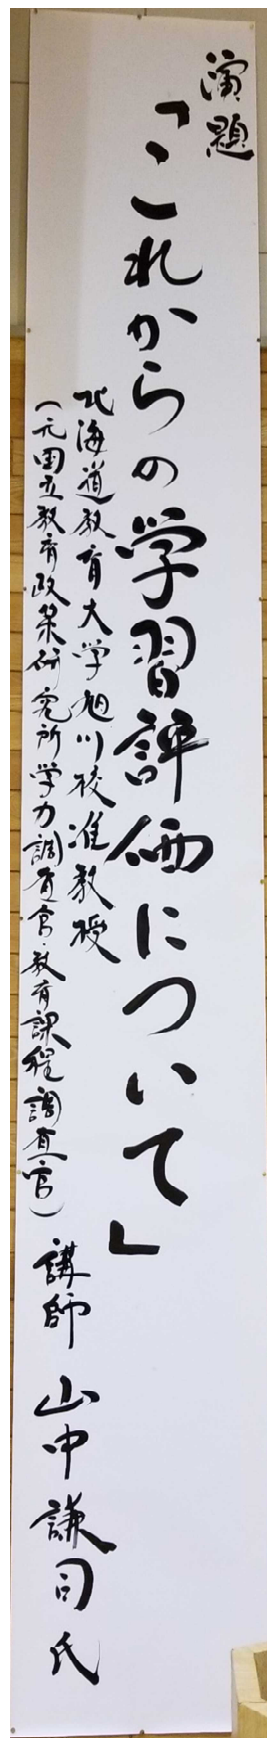 演題
「これからの学習評価について」
北海道教育大学旭川校准教授
(元国立教育政策研究所学力調査官・教育課程調査官)
講師 山中謙司氏